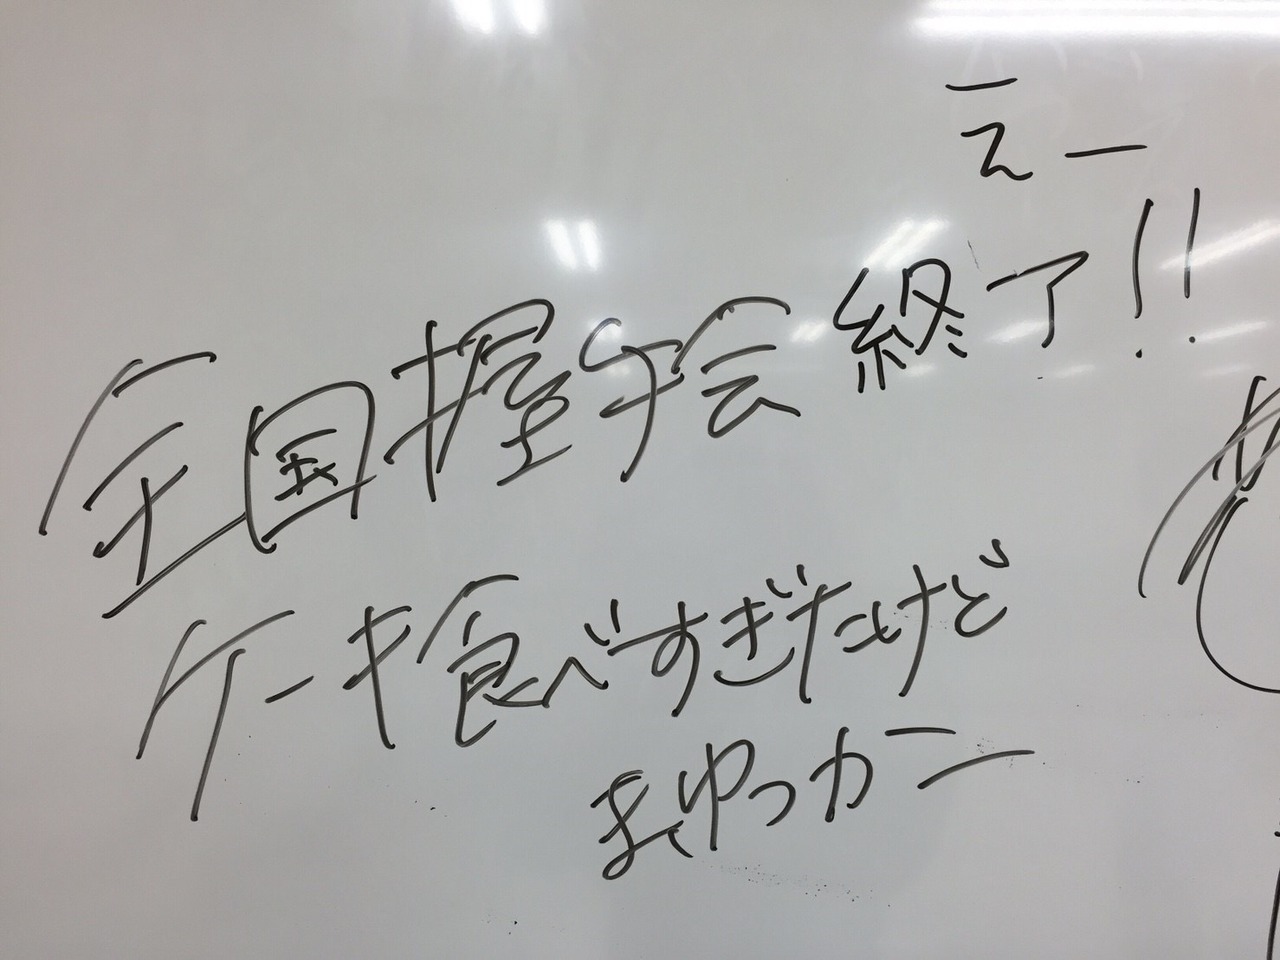 えー
全国握手会終了!!
ケーキ食べすぎたけど
まゆつカニ